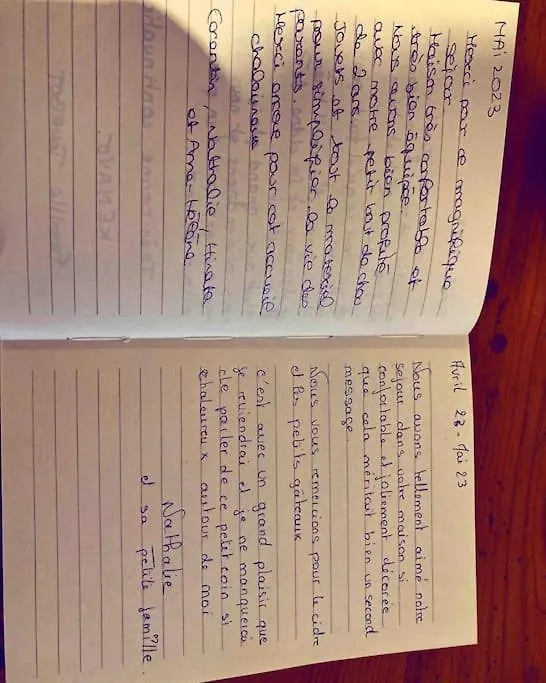 MAI 2023
Merci pour ce magnifique
séjour
Maison très confortable et
très bien équipée.
Nous avons bien profité
avec notre petit bout de chou
de 2 ans.
Jouets et tout le matériel
pour simplifier la vie des
parents.
Merci encore pour cet accueil
chaleureux
Corentin, Nathalie,
et Anne-Hélène
Avril 23 - Mai 23
Nous avons tellement aimé notre
sejour dans votre maison si
confortable et joliement décorée
que cela méritait bien un second
message
Nous vous remercions pour le cidre
et les petits gâteaux
c'est avec un grand plaisir que
je reviendrai et je ne manquerai
de parler de ce petit coin si
chaleureux autour de moi
Nathalie
et sa petite famille.